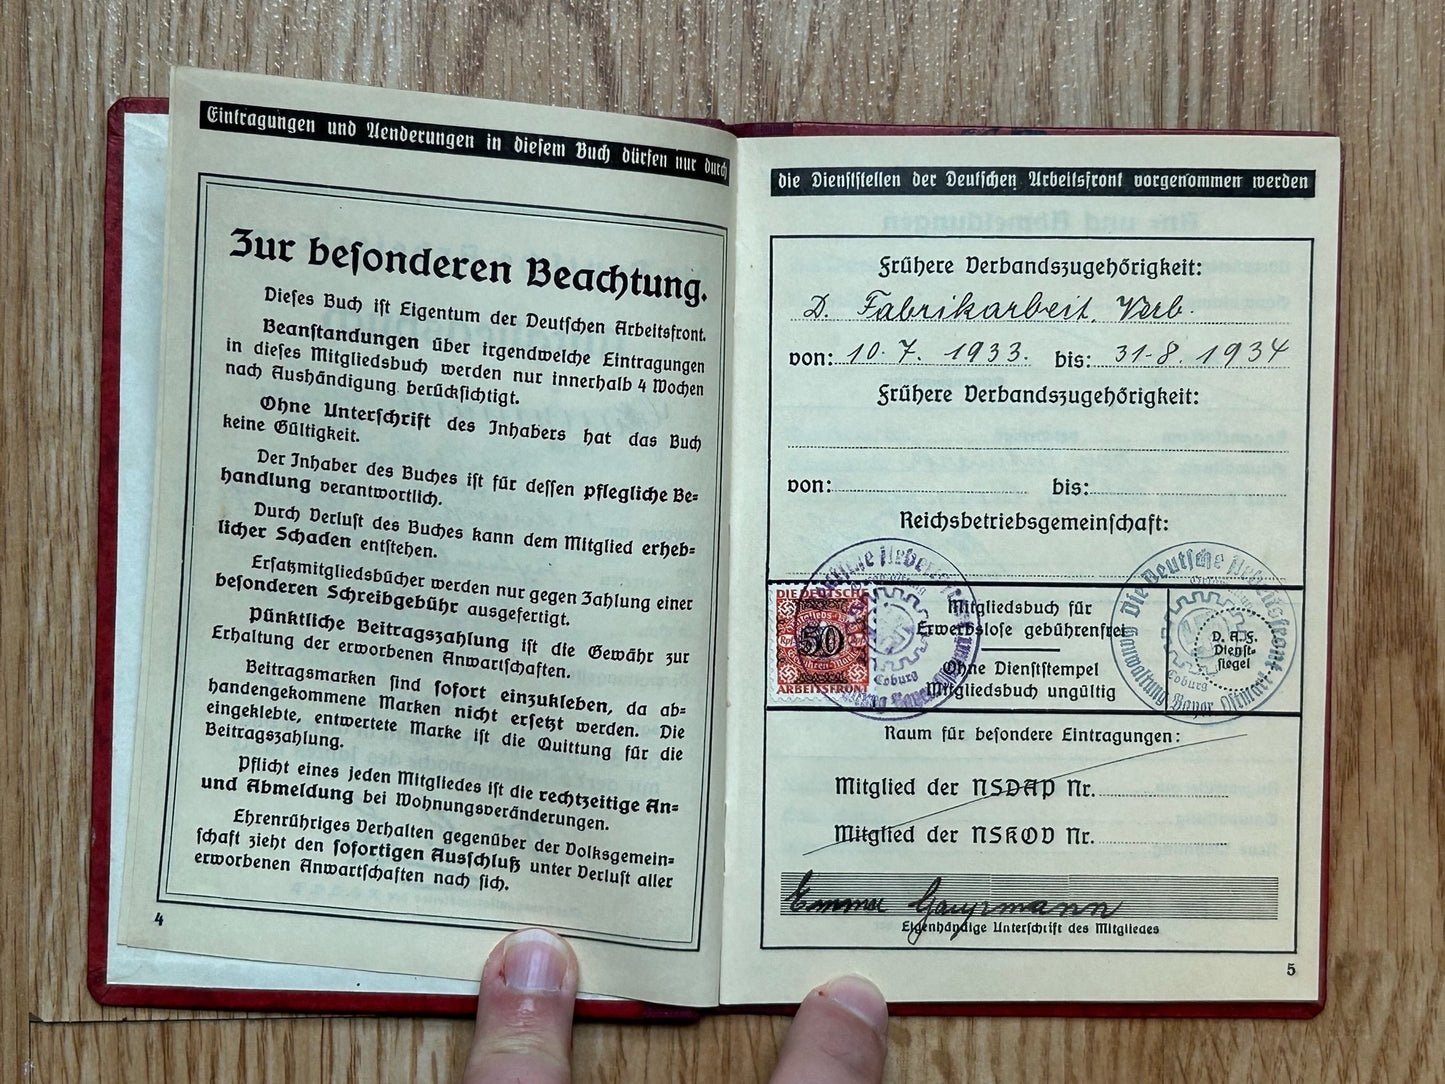 Eintragungen und Aenderungen in diesem Buch dürfen nur durch
Zur besonderen Beachtung.
Dieses Buch ist Eigentum der Deutschen Arbeitsfront.
Beanstandungen über irgendwelche Eintragungen
in dieses Mitgliedsbuch werden nur innerhalb 4 Wochen
nach Aushändigung berücksichtigt.
Ohne Unterschrift des Inhabers hat das Buch
keine Gültigkeit.
Der Inhaber des Buches ist für dessen pflegliche Be-
handlung verantwortlich.
Durch Verlust des Buches kann dem Mitglied erheb-
licher Schaden entstehen.
Ersatzmitgliedsbücher werden nur gegen Zahlung einer
besonderen Schreibgebühr ausgefertigt.
Pünktliche Beitragszahlung ist die Gewähr zur
Erhaltung der erworbenen Anwartschaften.
Beitragsmarken sind sofort einzukleben, da ab-
handengekommene Marken nicht ersetzt werden. Die
eingeklebte, entwertete Marke ist die Quittung für die
Beitragszahlung.
Pflicht eines jeden Mitgliedes ist die rechtzeitige An-
und Abmeldung bei Wohnungsveränderungen.
Ehrenrühriges Verhalten gegenüber der Volksgemein-
schaft zieht den sofortigen Ausschluß unter Verlust aller
erworbenen Anwartschaften nach sich.
4
die Dienststellen der Deutschen Arbeitsfront vorgenommen werden
Frühere Verbandszugehörigkeit:
D. Fabrikarbeit. Verb.
von: 10. 7. 1933. bis: 31. 8. 1934
Frühere Verbandszugehörigkeit:
von: bis:
Reichsbetriebsgemeinschaft:
DIE DEUTSCHE
50
ARBEITSFRONT
Coburg
Mitgliedsbuch für
Erwerbslose gebührenfrei
Ohne Dienststempel
Mitgliedsbuch ungültig
Die Deutsche Arbeitsfront
Coburg
D. A. F.
Dienst-
siegel
Raum für besondere Eintragungen:
Mitglied der NSDAP Nr.
Mitglied der NSKOV Nr.
Emma
Eigenhändige Unterschrift des Mitgliedes
5